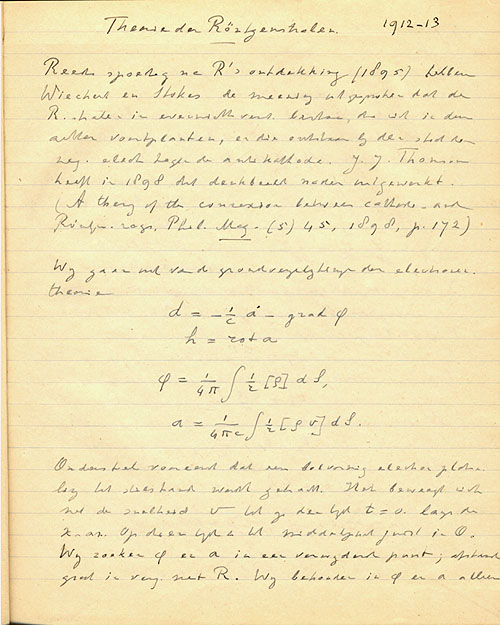 Theorie der Röntgenstralen. 1912-13
Reeds spoedig na R's ontdekking (1895) hebben
Wiechert en Stokes de meening uitgesproken dat de
R. stralen in evenwichtsverst. bestaan, die zich in den
aether voortplanten, en die ontstaan bij den stoot der
neg. electr. tegen de antikathode. J. J. Thomson
heeft in 1898 dit denkbeeld nader uitgewerkt.
(A theory of the connexion between cathode- and
Röntg.- rays, Phil. Mag. (5) 45, 1898, p. 172)
Wij gaan uit van de grondvergelijkingen der electronen-
theorie
d = - 1/c ȧ - grad φ
h = rot a
φ = 1/4π ∫ 1/r [ρ] dS,
a = 1/4πc ∫ 1/r [ρ v] dS.
Onderstel vooreerst dat een bolvormig electron plotse-
ling tot stilstand wordt gebracht. Het beweegt zich
met de snelheid v tot op den tijd t = 0 langs de
x-as. Op dien tijd is het middelpunt juist in O.
Wij zoeken φ en a in een verwijderd punt; afstand
groot in verg. met R. Wij behouden in φ en a alleen